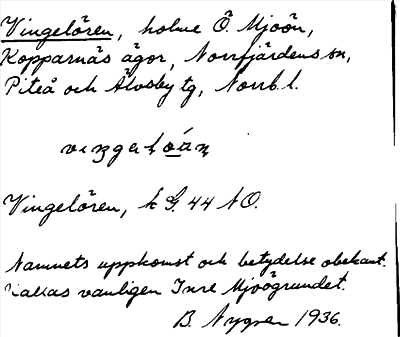 Vingelören, holme Ö. Mjoön,
Kopparnäs ägor, Norrfjärdens sn,
Piteå och Älvsby tg, Norrb. l.
Vingelören, k G. 44 NO.
Namnets uppkomst och betydelse obekant.
Kallas vanligen Inre Mjöögrundet.
B. Nygren 1936.